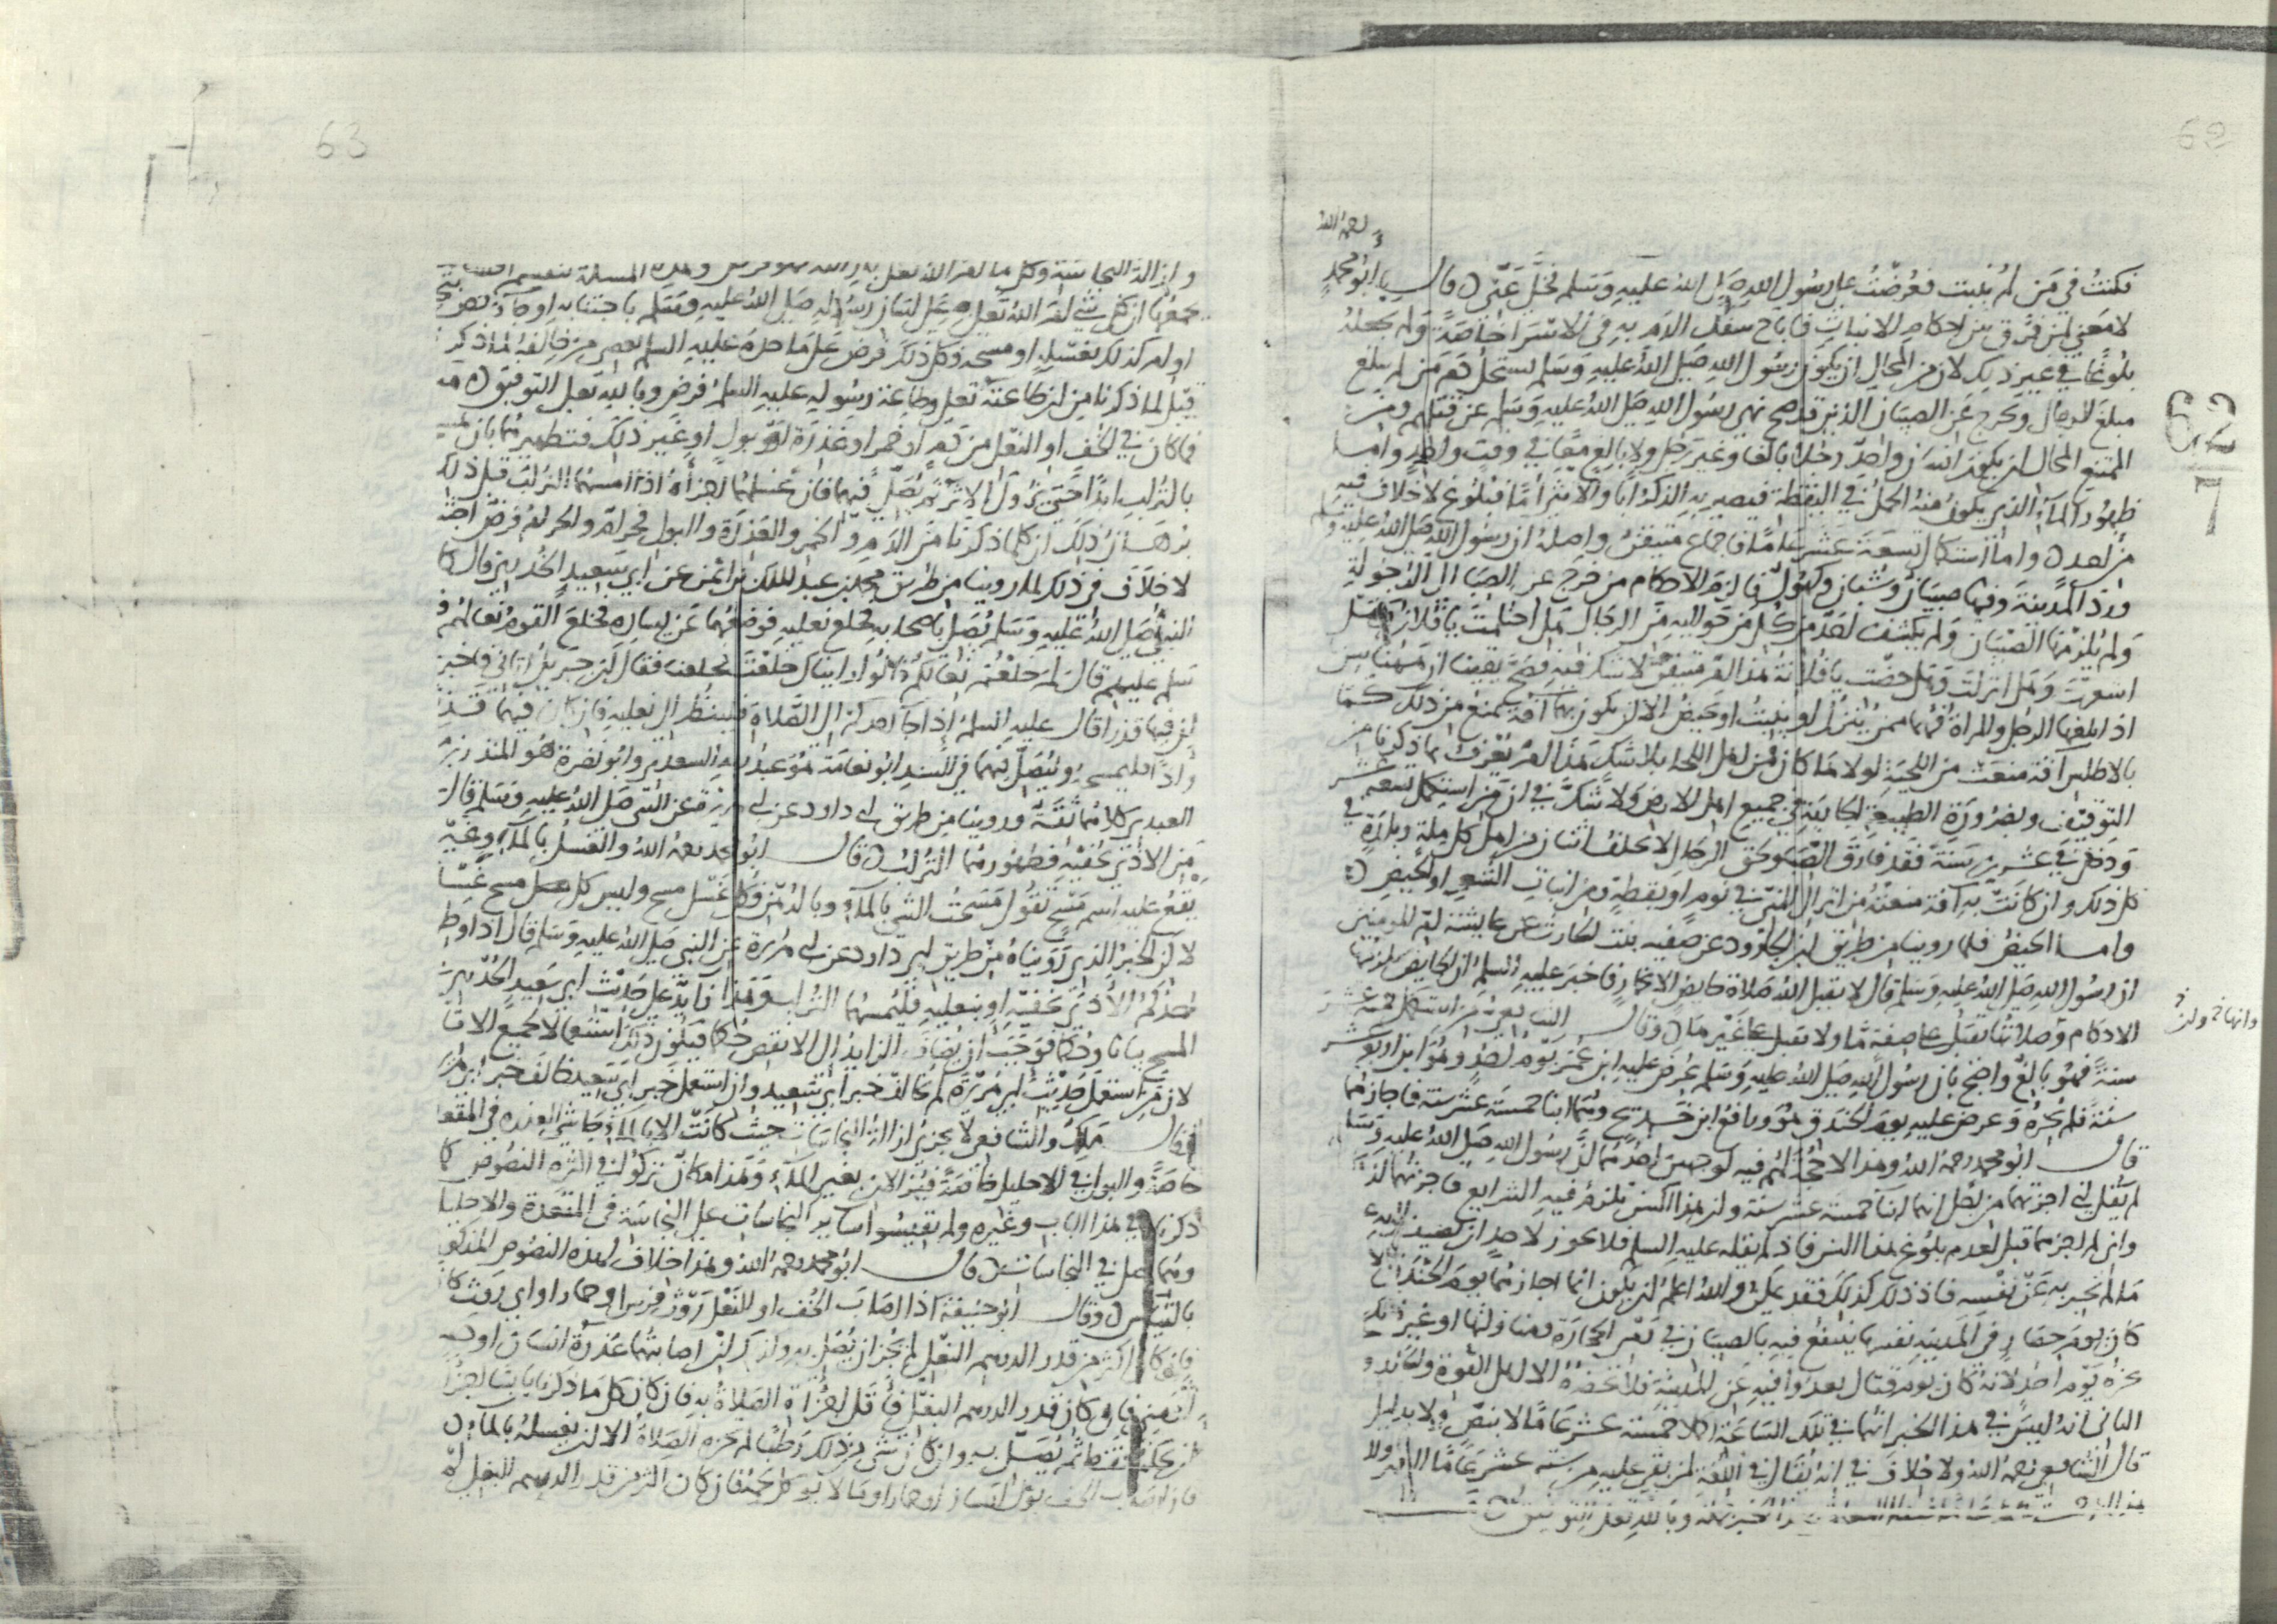 62
رحمه الله
فكنت في من لم ينبت فعرضت على رسول الله صلى الله عليه وسلم فخلي عني قال ابو محمد
لا معنى لمن فرق بين احكام الانبات فاباح سفك الدم به في الاسرا خاصة ولم يجعله
بلوغا في غير ذلك لان من المحال ان يكون رسول الله صلى الله عليه وسلم يستحل دم من لم يبلغ
مبلغ الرجال ويخرج عن الصبيان الذين قد صح نهي رسول الله صلى الله عليه وسلم عن قتلهم ومن
الممتنع المحال ان يكون انسان واحد رجلا بالغا وغير رجل ولا بالغ معا في وقت واحد واما
ظهور الما الذي يكون منه الحمل في اليقظة فيصير به الذكر ابا والانثى اما فبلوغ لا خلاف فيه
من احد واما استكمال تسعة عشر عاما فاجماع متيقن واصله ان رسول الله صلى الله عليه وسلم
ورد المدينة وفيها صبيان وشبان وكهول فالزم الاحكام من خرج عن الصبا الى الرجولة
ولم يلزمها الصبيان ولم يكشف احدا من كل من حواليه من الرجال هل احتلمت يا فلان وهل
اشعرت وهل انزلت وهل حضت يا فلانة هذا امر متيقن لا شك فيه فصح يقينا ان هاهنا سن
اذا بلغها الرجل والمراة فهما ممن ينزل او ينبت او يحيض الا ان يكون بهما آفة تمنع من ذلك كما
بالاطلس آفة منعت من اللحية لولاها كان من اهل اللحا بلا شك هذا امر يعرف بما ذكرنا من
التوقيف وبضرورة الطبيعة الجارية في جميع اهل الارض ولا شك في ان من استكمل تسعة عشر
ودخل في عشرين سنة فقد فارق الصبا ولحق الرجال لا يختلف اثنان من اهل كل ملة وبلدة في
كل ذلك وان كانت به آفة منعته من انزال المني في نوم او يقظة ومن انبات الشعر او الحيض
واما الحيض فلما روينا من طريق ابن الجارود عن صفية بنت الحارث عن عايشة ام المومنين
ان رسول الله صلى الله عليه وسلم قال لا يقبل الله صلاة حايض الا بخمار فاخبر عليه السلم ان الحايض تلزمها
الاحكام وصلاتها تقبل على صفة ما ولا تقبل على غيرها وقال الشافعي من استكمل خمسة عشر
سنة فهو بالغ واحتج بان رسول الله صلى الله عليه وسلم عرض عليه ابن عمر يوم احد وهو ابن اربع عشر
سنة فلم يجزه وعرض عليه يوم الخندق هو ورافع ابن خديج وهما ابنا خمسة عشر سنة فاجازهما
قال ابو محمد رحمه الله وهذا لا حجة لهم فيه لوجهين احدهما ان رسول الله صلى الله عليه وسلم
لم يقل اني اجزتهما من اجل انهما ابنا خمسة عشر سنة وان هذا السن تلزم فيه الشرايع فاجزتهما لذلك
واني لم اجزهما قبل لعدم بلوغ هذا السن فاذ لم يقله عليه السلم فلا يجوز لاحد ان يضيف اليه
ما لم يخبر به عن نفسه فاذ ذلك كذلك فقد يمكن والله اعلم ان يكون انما اجازهما يوم الخندق لانه
كان يوم حصار في المدينة نفسها ينتفع فيه بالصبيان في رمي الحجارة ومناولتها او غير ذلك
يجزه يوم احد لانه كان يوم قتال بعدوا فيه عن المدينة فلا يحضره الا اهل القوة والجلد و
الثاني انه ليس في هذا الخبر انهما في تلك الساعة اكملا خمسة عشر عاما لا بنص ولا بدليل
قال الشافعي رحمه الله ولا خلاف في انه يقال في اللغة لمن بقي عليه من ستة عشر عاما الشهر ولا
وبالله تعلى التوفيق
62
7
63
وازالة النجاسة وكل ما امر الله تعلى بازالته فهو فرض وهذه المسلة تنقسم
يجمعها ان كل شي امر الله تعلى على لسان رسوله صلى الله عليه وسلم باجتنابه او جا نص
او امر كذلك بغسله او مسحه فكل ذلك فرض على ما حده عليه السلم
قبل لما ذكرنا من ان طاعته تعلى وطاعة رسوله عليه السلم فرض وبالله تعلى التوفيق
فما كان في الخف او النعل من دم او خمر او عذرة او بول او غير ذلك فتطهيرهما بان
بالتراب ابدا حتى يزول الاثر ثم يصلي فيهما فان غسلهما اجزأه اذا امسهما التراب قبل ذلك
برهان ذلك ان كل ما ذكرنا من الدم والخمر والعذرة والبول حرام والحرام فرض
لا خلاف في ذلك لما روينا من طريق محمد بن عبد الملك بن ايمن عن ابي سعيد الخدري قال كا
النبي صلى الله عليه وسلم يصلي باصحابه فخلع نعليه فوضعهما عن يساره فخلع القوم نعالهم ف
سلم عليهم قال لم خلعتم نعالكم قالوا رايناك خلعت فخلعنا فقال ان جبريل اتاني فاخبر
ان فيهما قذرا قال عليه السلم اذا جا احدكم الى الصلاة فلينظر الى نعليه فان كان فيهما قذر
واذا فليمسحه وليصل فيهما في السند ابو نعامة هو عبد ربه السعدي وابو نضرة هو المنذر بن
العبدي كلاهما ثقة وروينا من طريق ابي داود عن ابي هريرة عن النبي صلى الله عليه وسلم قال
من الاذى بخفيه فطهورهما التراب قال ابو محمد رحمه الله والغسل بالماء وغيره
يقع عليه اسم مسح تقول مسحت الشي بالماء وبالدهن فكل غسل مسح وليس كل مسح غسلا
لان الخبر الذي رويناه من طريق ابي داود عن ابي هريرة عن النبي صلى الله عليه وسلم قال اذا وطئ
احدكم الاذى بخفيه او بنعليه فليمسهما التراب وهذا زايد على حديث ابي سعيد الخدري
لان من استعمل حديث ابي هريرة لم يخالف خبر ابي سعيد وان استعمل خبر ابي سعيد خالف خبر
وقال ملك والشافعي لا يجزي ازالة النجاسات حيث كانت الا بالماء حاشى العذرة في المقعد
خاصة والبول في الاحليل خاصة فيزالان بغير الماء وهذا مكان تركوا فيه اكثر النصوص كما
ذكرنا في هذا الباب وغيره ولم يقيسوا ساير النجاسات على النجاسة في المقعدة والاحليل
وهما اصل في النجاسات قال ابو محمد رحمه الله وهذا خلاف لهذه النصوص المذكو
بالقياس وقال ابو حنيفة اذا اصاب الخف او النعل روث فرس او حمار او اي روث كا
فان كان اكثر من قدر الدرهم البغلي لم يجز ان يصلي به وكذلك ان اصابتهما عذرة انسان او
او مني فان كان قدر الدرهم البغلي فاقل اجزأت الصلاة به فان كان كل ما ذكرنا يابسا اجزأ
ان يحكه فقط ثم يصلي به وان كان شي من ذلك رطبا لم تجزه الصلاة الا ان يغسله بالماء
فان اصاب الخف بول انسان او حمار او ما لا يوكل لحمه فان كان اكثر من قدر الدرهم البغلي لم